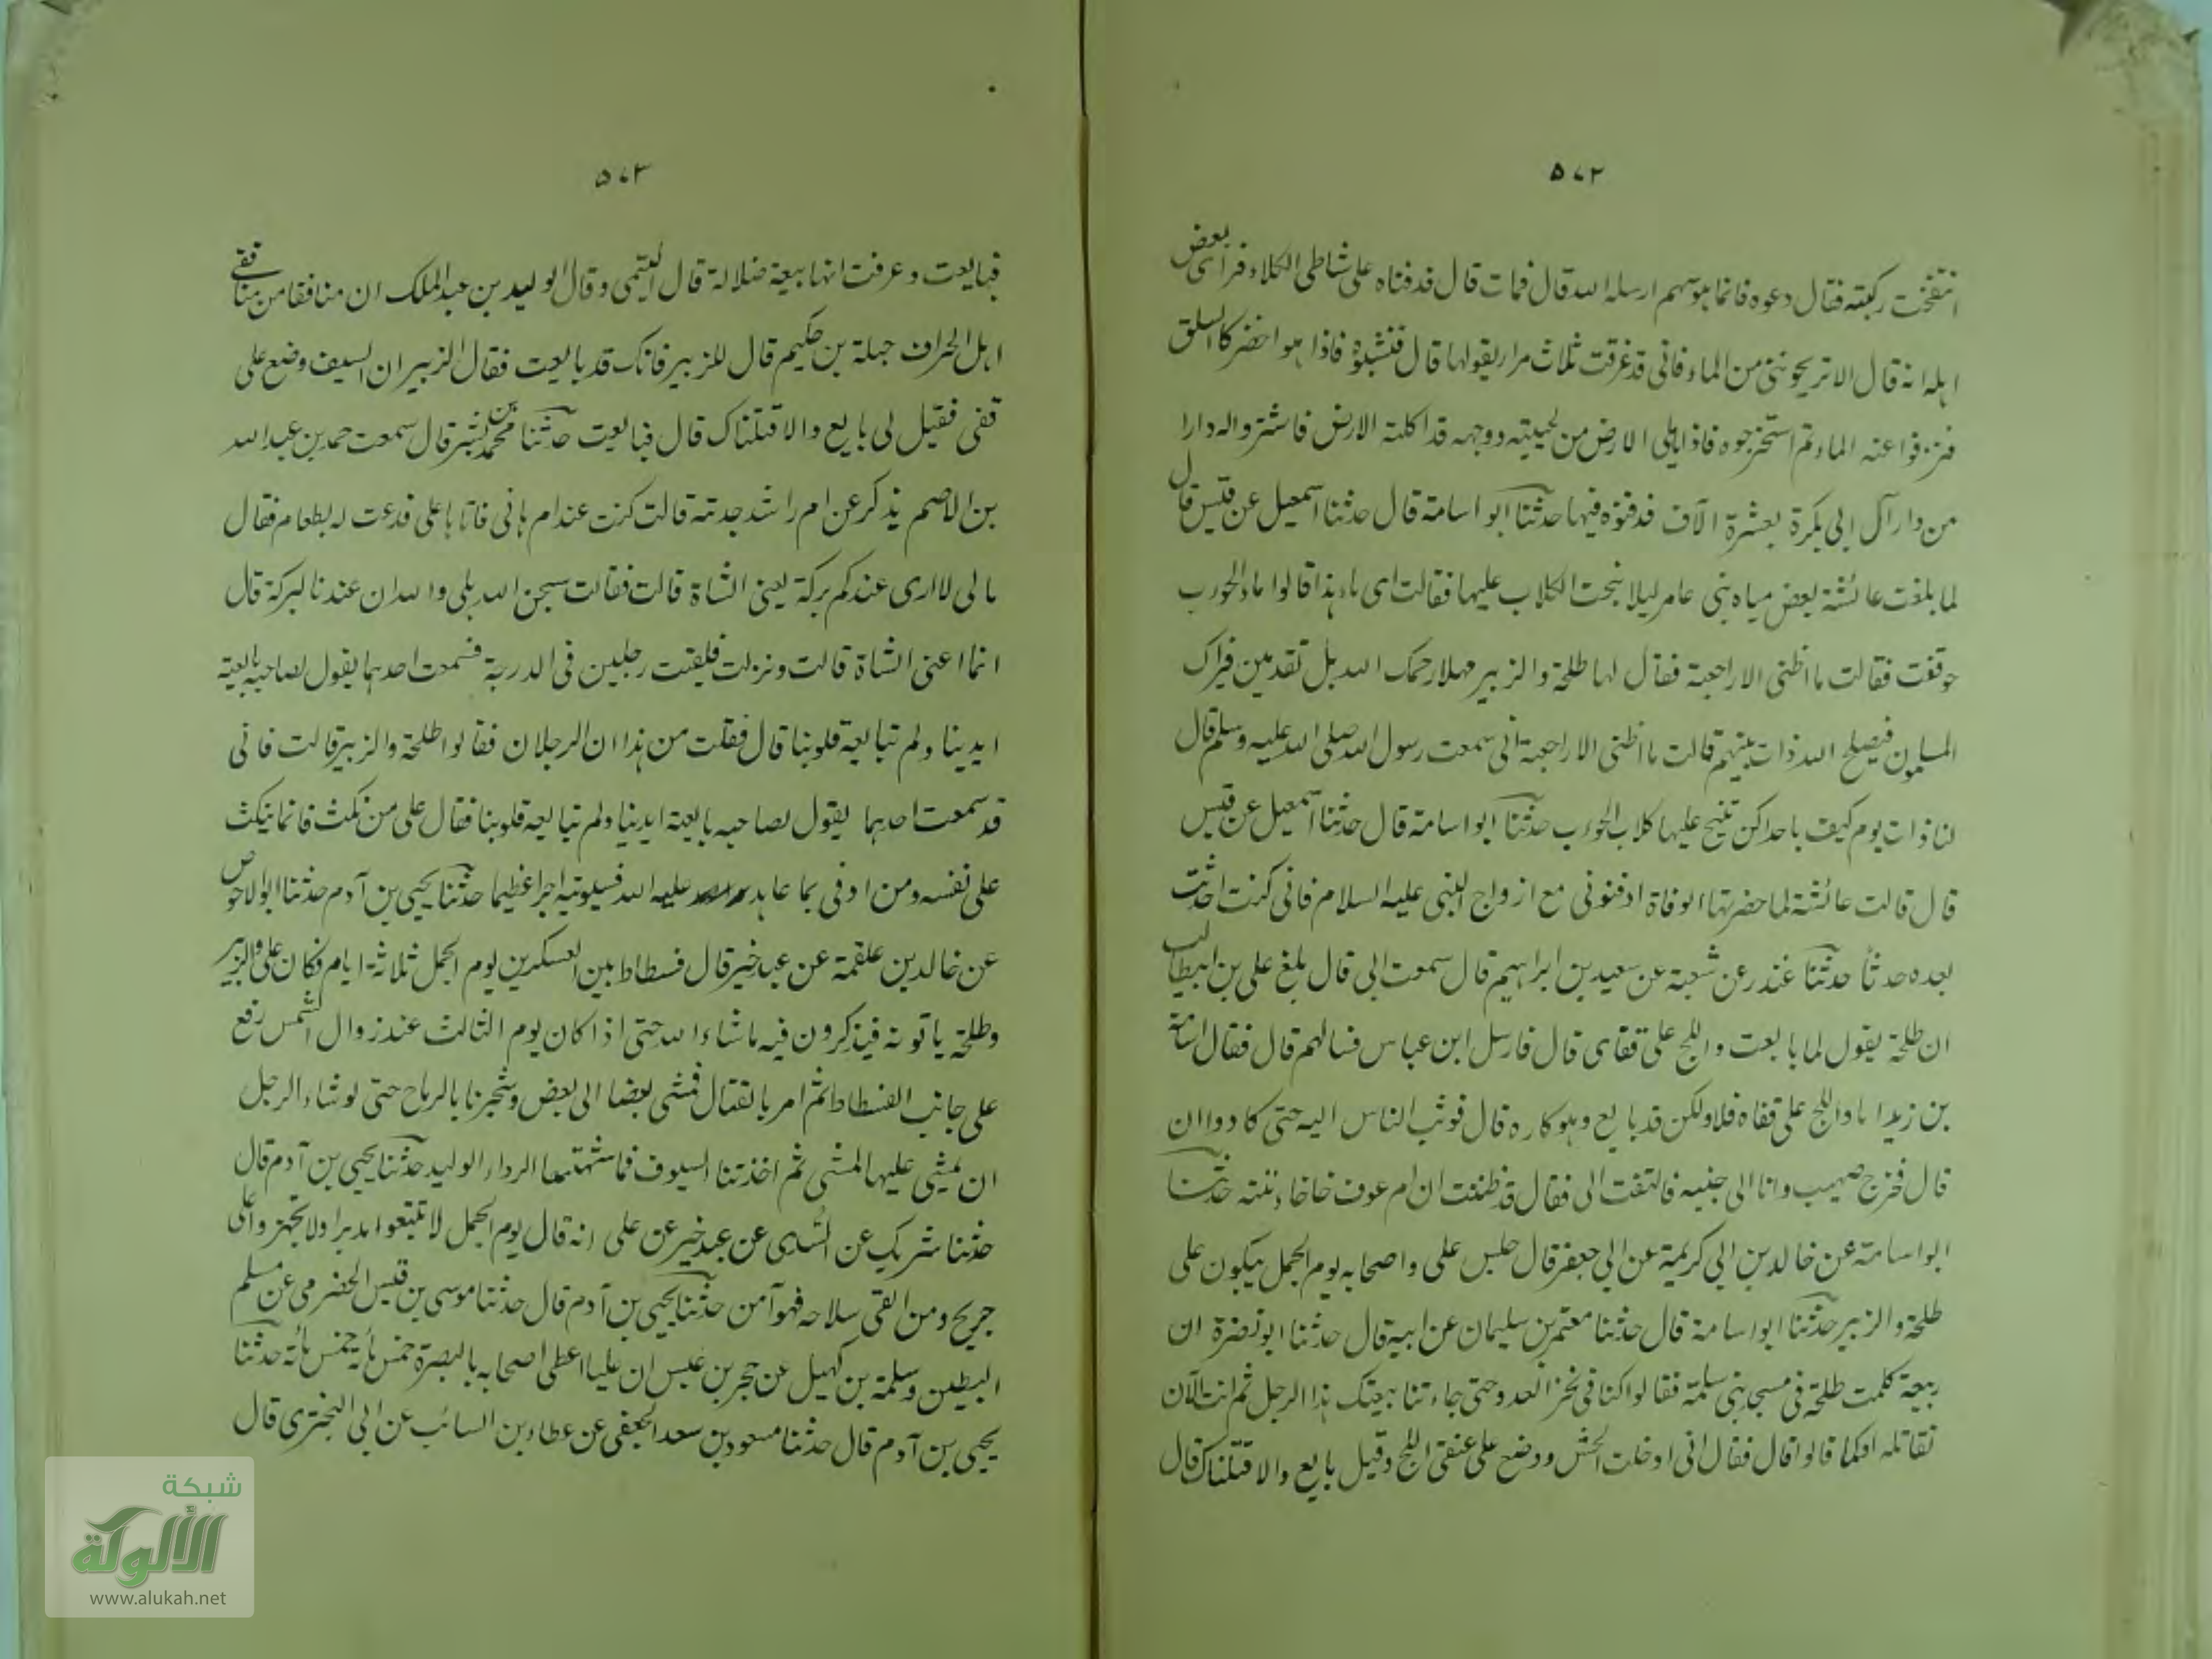 ٥٧٢
انتفخت ركبته فقال دعوه فانما هو سهم ارسله الله قال فمات قال فدفناه على شاطى الكلاء فراى بعض
اهله انه قال الا تريحوننى من الماء فانى قد غرقت ثلاث مرار يقولها قال فنبشوه فاذا هو اخضر كالسلق
فنزفوا عنه الماء ثم استخرجوه فاذا ما يلى الارض من لحيته ووجهه قد اكلته الارض فاشتروا له دارا
من دار آل ابى بكرة بعشرة الآف فدفنوه فيها حدثنا ابو اسامة قال حدثنا اسمعيل عن قيس قال
لما بلغت عائشة بعض مياه بنى عامر ليلا نبحت الكلاب عليها فقالت اى ماء هذا قالوا ماء الحوءب
فوقفت فقالت ما اظننى الا راجعة فقال لها طلحة والزبير مهلا رحمك الله بل تقدمين فيراك
المسلمون فيصلح الله ذات بينهم قالت ما اظننى الا راجعة انى سمعت رسول الله صلى الله عليه وسلم قال
لنا ذات يوم كيف باحداكن تنبح عليها كلاب الحوءب حدثنا ابو اسامة قال حدثنا اسمعيل عن قيس
قال قالت عائشة لما حضرتها الوفاة ادفنونى مع ازواج النبى عليه السلام فانى كنت احدثت
بعده حدثا حدثنا غندر عن شعبة عن سعيد بن ابراهيم قال سمعت ابى قال بلغ على بن ابيطالب
ان طلحة يقول لما بايعت واللج على قفاى قال فارسل ابن عباس فسالهم قال فقال اسامة
بن زيد اما واللج على قفاه فلا ولكن قد بايع وهو كاره قال فوثب الناس اليه حتى كادوا ان
قال فخرج صهيب وانا الى جنبه فالتفت الى فقال قد ظننت ان ام عوف حدثنا
ابو اسامة عن خالد بن ابى كريمة عن ابى جعفر قال جلس على واصحابه يوم الجمل يبكون على
طلحة والزبير حدثنا ابو اسامة قال حدثنا معتمر بن سليمان عن ابيه قال حدثنا ابو نضرة ان
ربيعة كلمت طلحة فى مسجد بنى سلمة فقالوا كنا فى نحر العدو حتى جاءتنا بيعتك هذا الرجل ثم انت الآن
تقاتله اوكما قالوا قال فقال انى ادخلت الحش ووضع على عنقى اللج وقيل بايع والا قتلناك قال
٥٧٣
فبايعت وعرفت انها بيعة ضلالة قال التيمى وقال الوليد بن عبد الملك ان منافقا من منافقى
اهل العراق جبلة بن حكيم قال للزبير فانك قد بايعت فقال الزبير ان السيف وضع على
قفى فقيل لى بايع والا قتلناك قال فبايعت حدثنا محمد بن بشر قال سمعت حمد بن عبد الله
بن الاصم يذكر عن ام راشد جدته قالت كنت عند ام هانى فاتاها على فدعت له بطعام فقال
مالى لا ارى عندكم بركة يعنى الشاة قالت فقالت سبحن الله بلى والله ان عندنا لبركة قال
انما اعنى الشاة قالت ونزلت فلقيت رجلين فى الدرجة فسمعت احدهما يقول لصاحبه بايعته
ايدينا ولم تبايعه قلوبنا قال فقلت من هذان الرجلان فقالوا طلحة والزبير قالت فانى
قد سمعت احدهما يقول لصاحبه بايعته ايدينا ولم تبايعه قلوبنا فقال على من نكث فانما ينكث
على نفسه ومن اوفى بما عاهد عليه الله فسيوتيه اجرا عظيما حدثنا يحيى بن آدم حدثنا ابو الاحوص
عن خالد بن علقمة عن عبد خير قال فسطاط بين العسكرين يوم الجمل ثلاثة ايام فكان على والزبير
وطلحة ياتونه فيذكرون فيه ما شاء الله حتى اذا كان يوم الثالث عند زوال الشمس رفع
على جانب الفسطاط ثم امر بالقتال فمشى بعضنا الى بعض وشجرنا بالرماح حتى لو شاء الرجل
ان يمشى عليها لمشى ثم اخذتنا السيوف فما شبهتها الا دار الوليد حدثنا يحيى بن آدم قال
حدثنا شريك عن السدى عن عبد خير عن على انه قال يوم الجمل لا تتبعوا مدبرا ولا تجهزوا على
جريح ومن القى سلاحه فهو آمن حدثنا يحيى بن آدم قال حدثنا موسى بن قيس الحضرمى عن مسلم
البطين وسلمة بن كهيل عن حجر بن عنبس ان عليا اعطى اصحابه بالبصرة خمس مأئة خمس مأئة حدثنا
يحيى بن آدم قال حدثنا مسعود بن سعد الجعفى عن عطاء بن السائب عن ابى البخترى قال
شبكة
الألوكة
www.alukah.net